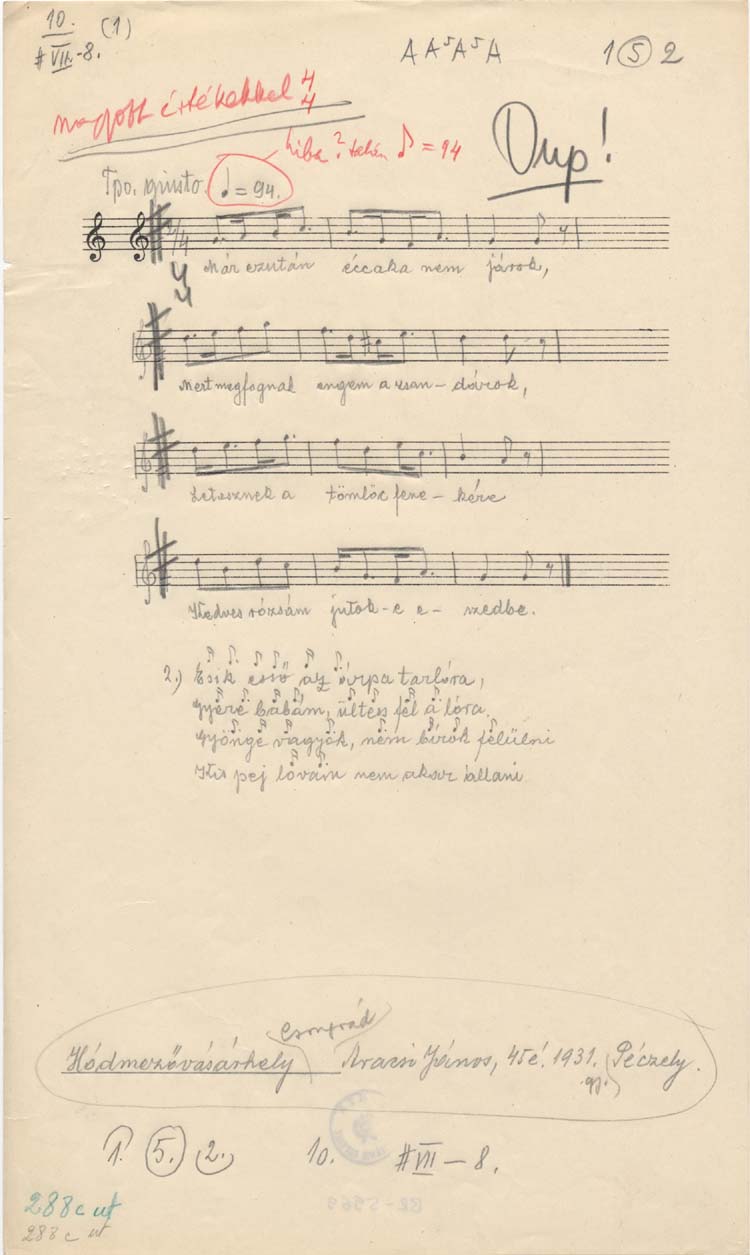 10. (1)
# VII.-8.
A A⁵ A⁵ A 1 (5) 2
nagyobb értékekkel 4/4
hiba? talán ♪ = 94
Dup!
Tpo. giusto. ♩ = 94.
2/4
4/4
Már ezután éccaka nem járok,
Mert megfognak engem a zsan-dárok,
Letesznek a tömlöc fene-kére
Kedves rózsám jutok-e e-szedbe.
2.) Esik esső az árpa tarlóra,
Gyere babám, ültess fel a lóra.
Gyönge vagyok, nem bírok felülni
Kis pej lovam nem akar állani
Csongrád
Hódmezővásárhely Aracsi János, 45 é. 1931. Péczely.
gy.
1. (5.) 2. 10. # VII - 8.
288 c ut
288 c ut